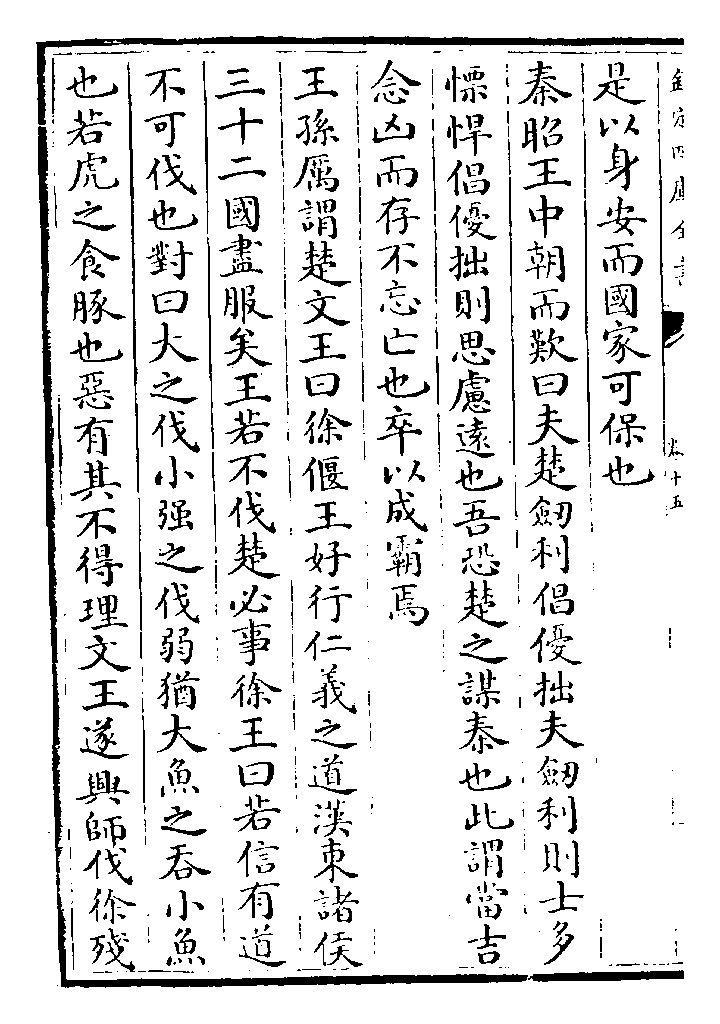 欽定四庫全書
卷十五
是以身安而國家可保也
秦昭王中朝而歎曰夫楚劒利倡優拙夫劒利則士多
慓悍倡優拙則思慮遠也吾恐楚之謀秦也此謂當吉
念凶而存不忘亡也卒以成霸焉
王孫厲謂楚文王曰徐偃王好行仁義之道漢東諸侯
三十二國盡服矣王若不伐楚必事徐王曰若信有道
不可伐也對曰大之伐小强之伐弱猶大魚之吞小魚
也若虎之食豚也惡有其不得理文王遂興師伐徐殘